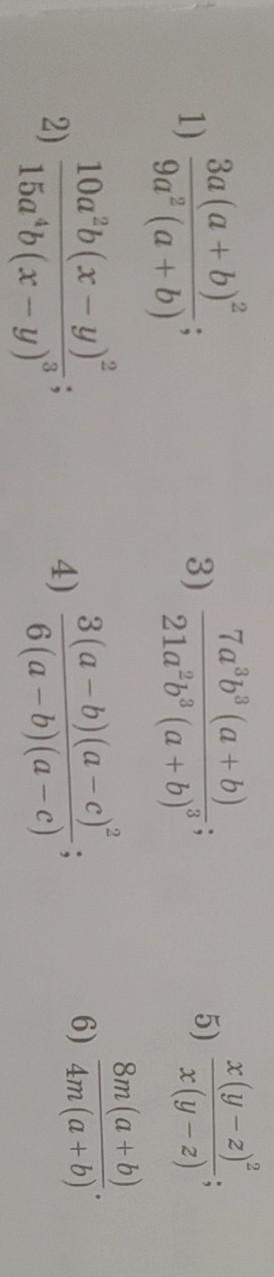 1) \frac{3a(a+b)^2}{9a^2(a+b)};
2) \frac{10a^2b(x-y)^2}{15a^4b(x-y)^3};
3) \frac{7a^3b^3(a+b)}{21a^2b^3(a+b)^3};
4) \frac{3(a-b)(a-c)^2}{6(a-b)(a-c)};
5) \frac{x(y-z)^2}{x(y-z)};
6) \frac{8m(a+b)}{4m(a+b)}.